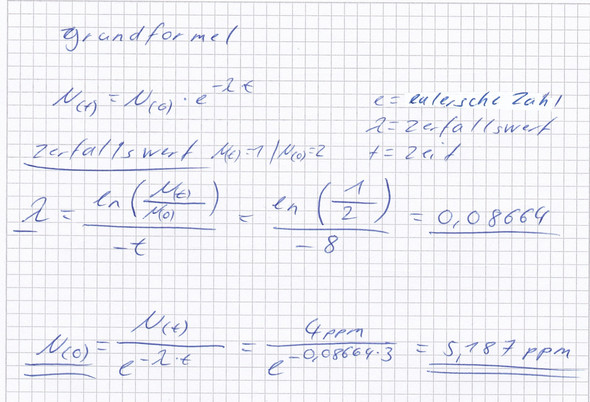 grundformel
N(t) = N(0) · e^-λt
e = eulersche Zahl
λ = Zerfallswert
t = Zeit
Zerfallswert N(t)=1 / N(0)=2
λ = ln(N(t)/N(0)) / -t = ln(1/2) / -8 = 0,08664
N(0) = N(t) / e^-λ·t = 4ppm / e^-0,08664·3 = 5,187 ppm